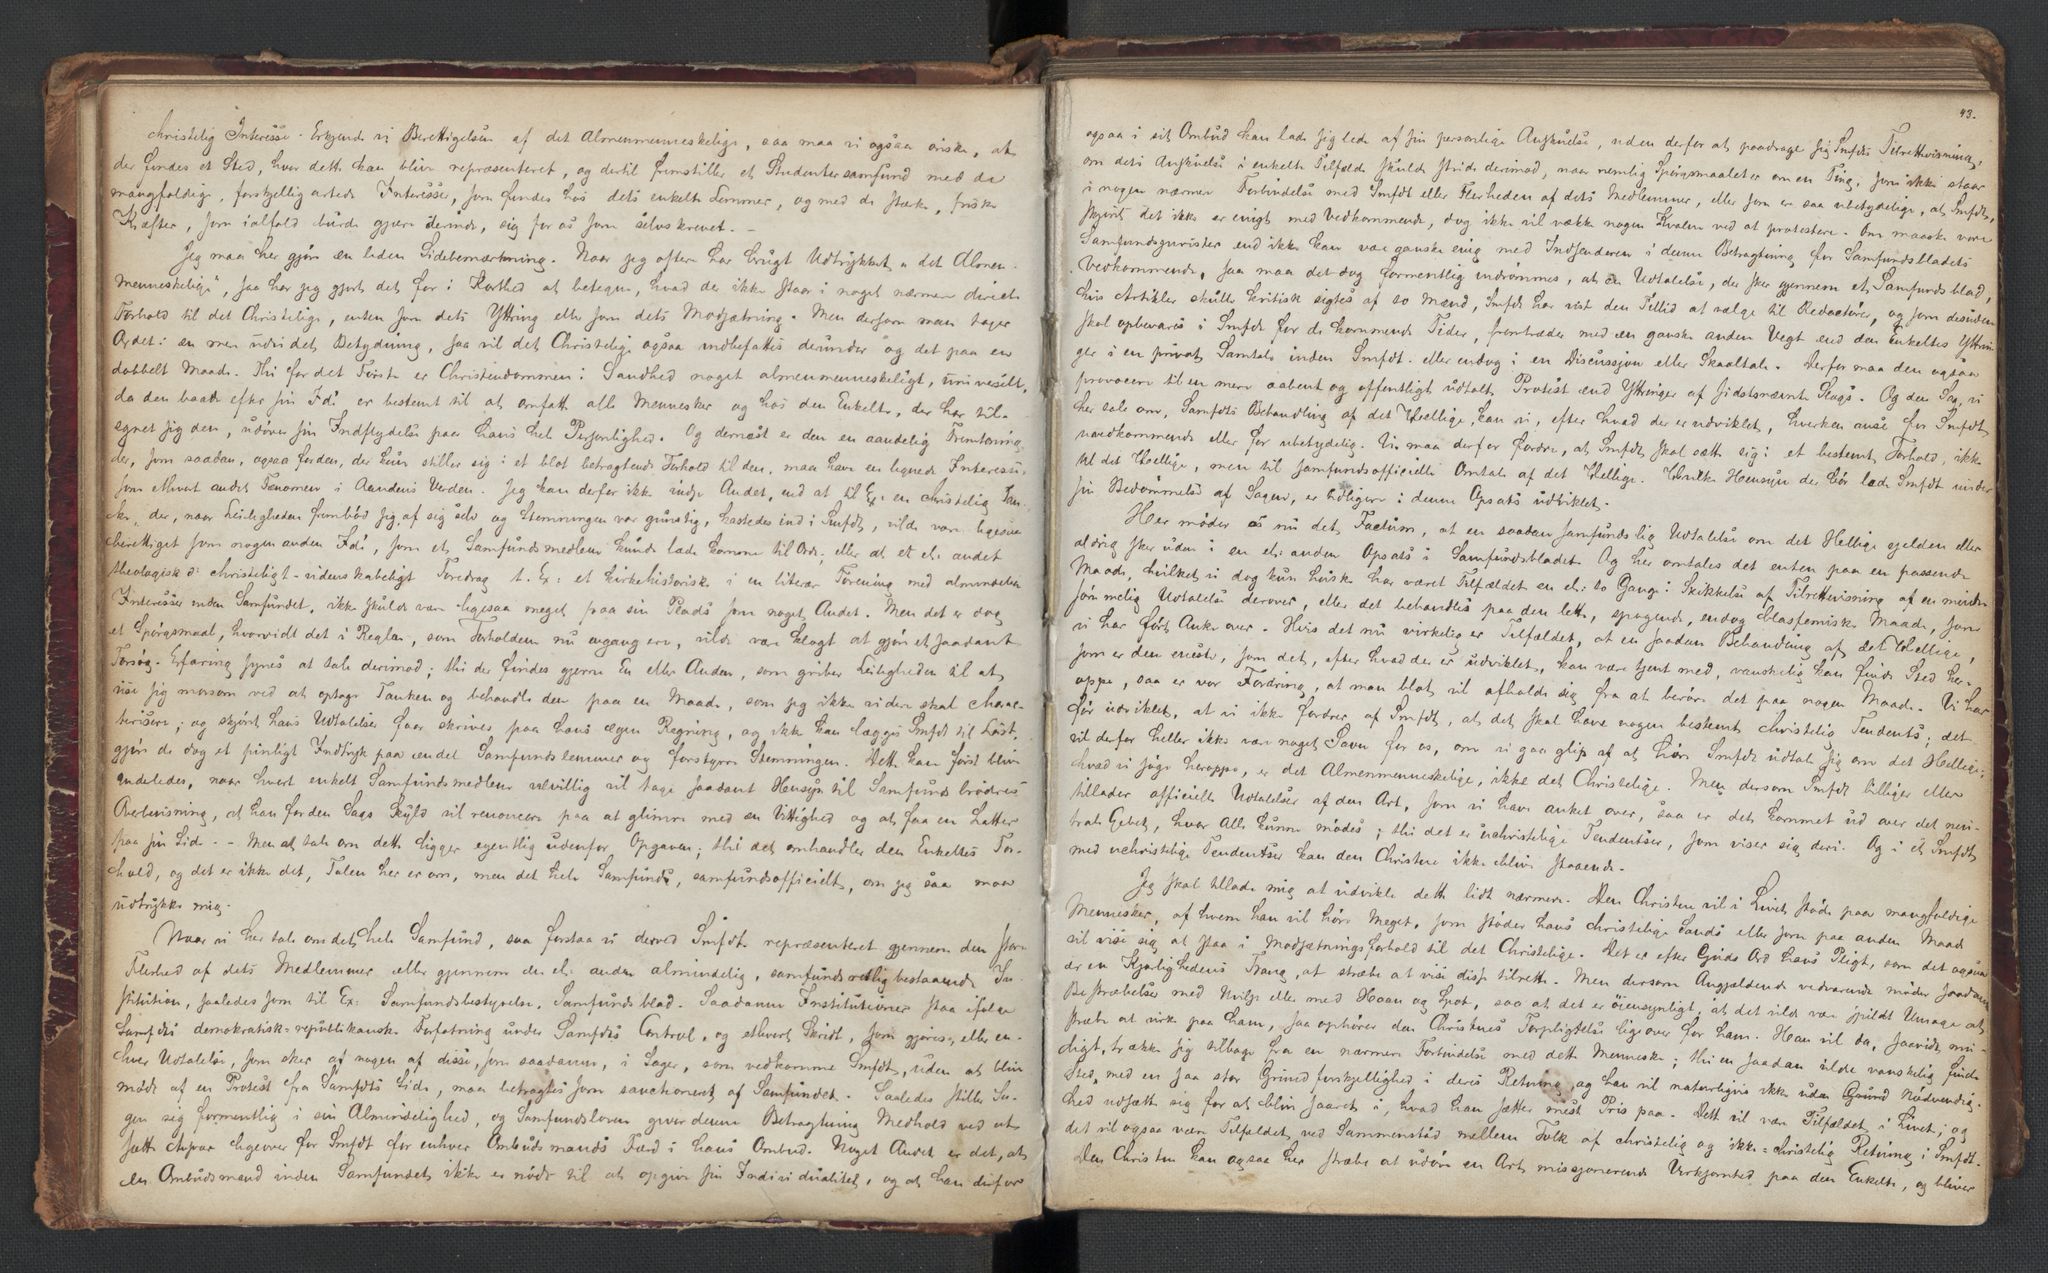 christelig Interesse. Erkjende vi Berettigelsen af det Almenmenneskelige, saa maa vi ogsaa ønske, at
der findes et Sted, hvor dette kan blive repræsenteret, og dertil fremstiller et Studentersamfund med de
mangfoldige, forskjelligartede Interesser, som findes hos dets enkelte Lemmer, og med de stærke, friske
Kræfter, som ialfald burde gjøre derinde, sig for os som selvskrevet. –
Jeg maa her gjøre en liden Sidebemærkning. Naar jeg oftere har brugt Udtrykket „det Almen-
menneskelige", saa har jeg gjort det for i Korthed at betegne, hvad der ikke staar i noget nærmere directe
Forhold til det Christelige, enten som dets Yttring eller som dets Modsætning. Men dersom man tager
Ordet i en mere udvidet Betydning, saa vil det Christelige ogsaa indbefattes derunder og det paa en
dobbelt Maade. Thi for det Første er Christendommen i Sandhed noget almenmenneskeligt, universelt,
da den baade efter sin Idé er bestemt til at omfatte alle Mennesker og hos den Enkelte, der har til-
egnet sig den, udøver sin Indflydelse paa hans hele Personlighed. Og dernæst er den en aandelig Fremtoning,
der, som saadan, ogsaa for den, der kun stiller sig i et blot betragtende Forhold til den, maa have en lignende Interesse,
som ethvert andet Fænomen i Aandens Verden. Jeg kan derfor ikke indse Andet, end at til Ex: en christelig Tan-
ke, der, naar Leiligheden frembød sig af sig selv og Stemningen var gunstig, kastedes ind i Smfdt, vilde være ligesaa
berettiget som nogen anden Idé, som et Samfundsmedlem kunde lade komme til Orde, eller at et el: andet
theologisk ɔ: christeligt-videnskabeligt Foredrag t. Ex: et kirkehistorisk i en literær Forening med almindelige
Interesser inden Samfundet, ikke skulde være ligesaa meget paa sin Plads som noget Andet. Men det er dog
et Spørgsmaal, hvorvidt det i Reglen, som Forholdene nu engang ere, vilde være klogt at gjøre et saadant
Forsøg. Erfaring synes at tale derimod; thi der findes gjerne En eller Anden, som griber Leiligheden til at
vise sig morsom ved at optage Tanken og behandle den paa en Maade, som jeg ikke videre skal charac-
terisere; og skjønt hans Udtalelser faar skrives paa hans egen Regning, og ikke kan lægges Smfdt til Last,
gjøre de dog et pinligt Indtryk paa endel Samfundslemmer og forstyrre Stemningen. Dette kan først blive
anderledes, naar hvert enkelt Samfundsmedlem velvillig vil tage saadant Hensyn til Samfundsbrødres
Overbevisning, at han for den Sags Skyld vil renoncere paa at glimre med en Vittighed og at faa en Latter
paa sin Side. – Men at tale om dette ligger egentlig udenfor Opgaven; thi det omhandler den Enkeltes For-
hold, og det er ikke det, Talen her er om, men det hele Samfunds, samfundsofficielt, om jeg saa maa
udtrykke mig.
Naar vi her tale om det hele Samfund, saa forstaa vi derved Smfdt repræsenteret gjennem den store
Flerhed af dets Medlemmer eller gjennem den el: anden almindelig, samfundsretslig bestaaende In-
stitution, saaledes som til Ex: Samfundsbestyrelse, Samfundsblad. Saadanne Institutioner staa ifølge
Samfdts demokratisk-republikanske Forfatning under Samfdts Control, og ethvert Skridt, som gjøres, eller en-
hver Udtalelse, som sker af nogen af disse, som saadanne, i Sager, som vedkomme Smfdt, uden at blive
mødt af en Protest fra Samfdts Side, maa betragtes som sanctioneret af Samfundet. Saaledes stiller Sa-
gen sig formentlig i sin Almindelighed, og Samfundsloven giver denne Betragtning Medhold ved at
sætte Ansvar ligeover for Smfdt for enhver Ombudsmands Færd i hans Ombud. Noget Andet er det, at
en Ombudsmand inden Samfundet ikke er nødt til at opgive sin Individualitet, og at han derfor
43.
ogsaa i sit Ombud kan lade sig lede af sin personlige Anskuelse, uden derfor at paadrage sig Smfdts Tilrettevisning,
om dets Anskuelse i enkelte Tilfælde skulde stride derimod, naar nemlig Spørgsmaalet er om en Ting, som ikke staar
i nogen nærmere Forbindelse med Smfdt eller Flerheden af dets Medlemmer, eller som er saa ubetydelige, at Smfdt,
skjønt det ikke er enigt med Vedkommende, dog ikke vil vække nogen Kvalm ved at protestere. Om maaske vore
Samfundsjurister end ikke kan være ganske enig med Indsenderen i denne Betragtning for Samfundsbladets
Vedkommende, saa maa det dog formentlig indrømmes, at en Udtalelse, der sker gjennem et Samfundsblad,
hvis Artikler skulle kritisk sigtes af to Mænd, Smfdt har vist den Tillid at vælge til Redactører, og som desuden
skal opbevares i Smfdt for de kommende Tider, fremtræder med en ganske anden Vegt end den Enkeltes Yttrin-
ger i en privat Samtale inden Smfdt. eller endog i en Discussjon eller Skaaltale. Derfor maa den ogsaa
provocere til en mere aabent og offentligt udtalt Protest end Yttringer af sidstnævnte Slags. Og den Sag, vi
her tale om, Samfdts Behandling af det Hellige, kan vi, efter hvad der er udviklet, hverken anse for Smfdt
uvedkommende eller for ubetydelig. Vi maa derfor fordre, at Smfdt skal sætte sig i et bestemt Forhold, ikke
til det Hellige, men til samfundsofficielle Omtale af det Hellige. Hvilke Hensyn der bør lede Smfdt under
sin Bedømmelse af Sagen, er tidligere i denne Opsats udviklet.
Her møder os nu det Factum, at en saadan samfundslig Udtalelse om det Hellige sjelden eller
aldrig sker uden i en el: anden Opsats i Samfundsbladet. Og her omtales det enten paa en passende
Maade, hvilket vi dog kun huske har været Tilfældet en el: to Gange i Skikkelse af Tilrettevisning af en mindre
sømmelig Udtalelse derover, eller det behandles paa den lette, spøgende, endog blasfemiske Maade, som
vi har ført Anke over. Hvis det nu virkelig er Tilfældet, at en saadan Behandling af det Hellige,
som er den eneste, som det, efter hvad der er udviklet, kan være tjent med, vanskelig kan finde Sted her-
oppe, saa er vor Fordring, at man blot vil afholde sig fra at berøre det paa nogen Maade. Vi har
før udviklet, at vi ikke fordrer af Smfdt, at det skal have nogen bestemt christelig Tendents; det
vil derfor heller ikke være noget Savn for os, om vi gaa glip af at høre Smfdt udtale sig om det Hellige;
hvad vi søge heroppe, er det Almenmenneskelige, ikke det Christelige. Men dersom Smfdt billiger eller
tillader officielle Udtalelser af den Art, som vi have anket over, saa er det kommet ud over det neu-
trale Gebet, hvor Alle kunne mødes; thi det er uchristelige Tendentser, som viser sig deri. Og i et Smfdt
med uchristelige Tendentser kan den Christne ikke blive staaende.
Jeg skal tillade mig at udvikle dette lidt nærmere. Den Christne vil i Livet støde paa mangfoldige
Mennesker, af hvem han vil høre Meget, som støder hans christelige Sands eller som paa anden Maade
vil vise sig at staa i Modsætningsforhold til det Christelige. Det er efter Guds Ord hans Pligt, som det ogsaa
er en Kjærlighedens Trang, at stræbe at vise disse tilrette. Men dersom Angjældende vedvarende møder saadanne
Bestræbelser med Uvilje eller med Haan og Spot, saa at det er øiensynligt, at det vilde være spildt Umage at
stræbe at virke paa ham, saa ophører den Christnes Forpligtelse ligeover for ham. Han vil da, saavidt mu-
ligt, trække sig tilbage fra en nærmere Forbindelse med dette Menneske; thi en saadan vilde vanskelig finde
Sted med en saa stor Grundforskjellighed i deres Retning, og han vil naturligvis ikke uden Grund Nødvendig-
hed udsætte sig for at blive saaret i, hvad han sætter mest Pris paa. Dette vil være Tilfældet i Livet; og
det vil ogsaa være Tilfældet ved Sammenstød mellem Folk af christelig og ikke-christelig Retning i Smfdt.
Den Christne kan ogsaa her stræbe at udøve en Art missjonerende Virksomhed paa den Enkelte, og bliver